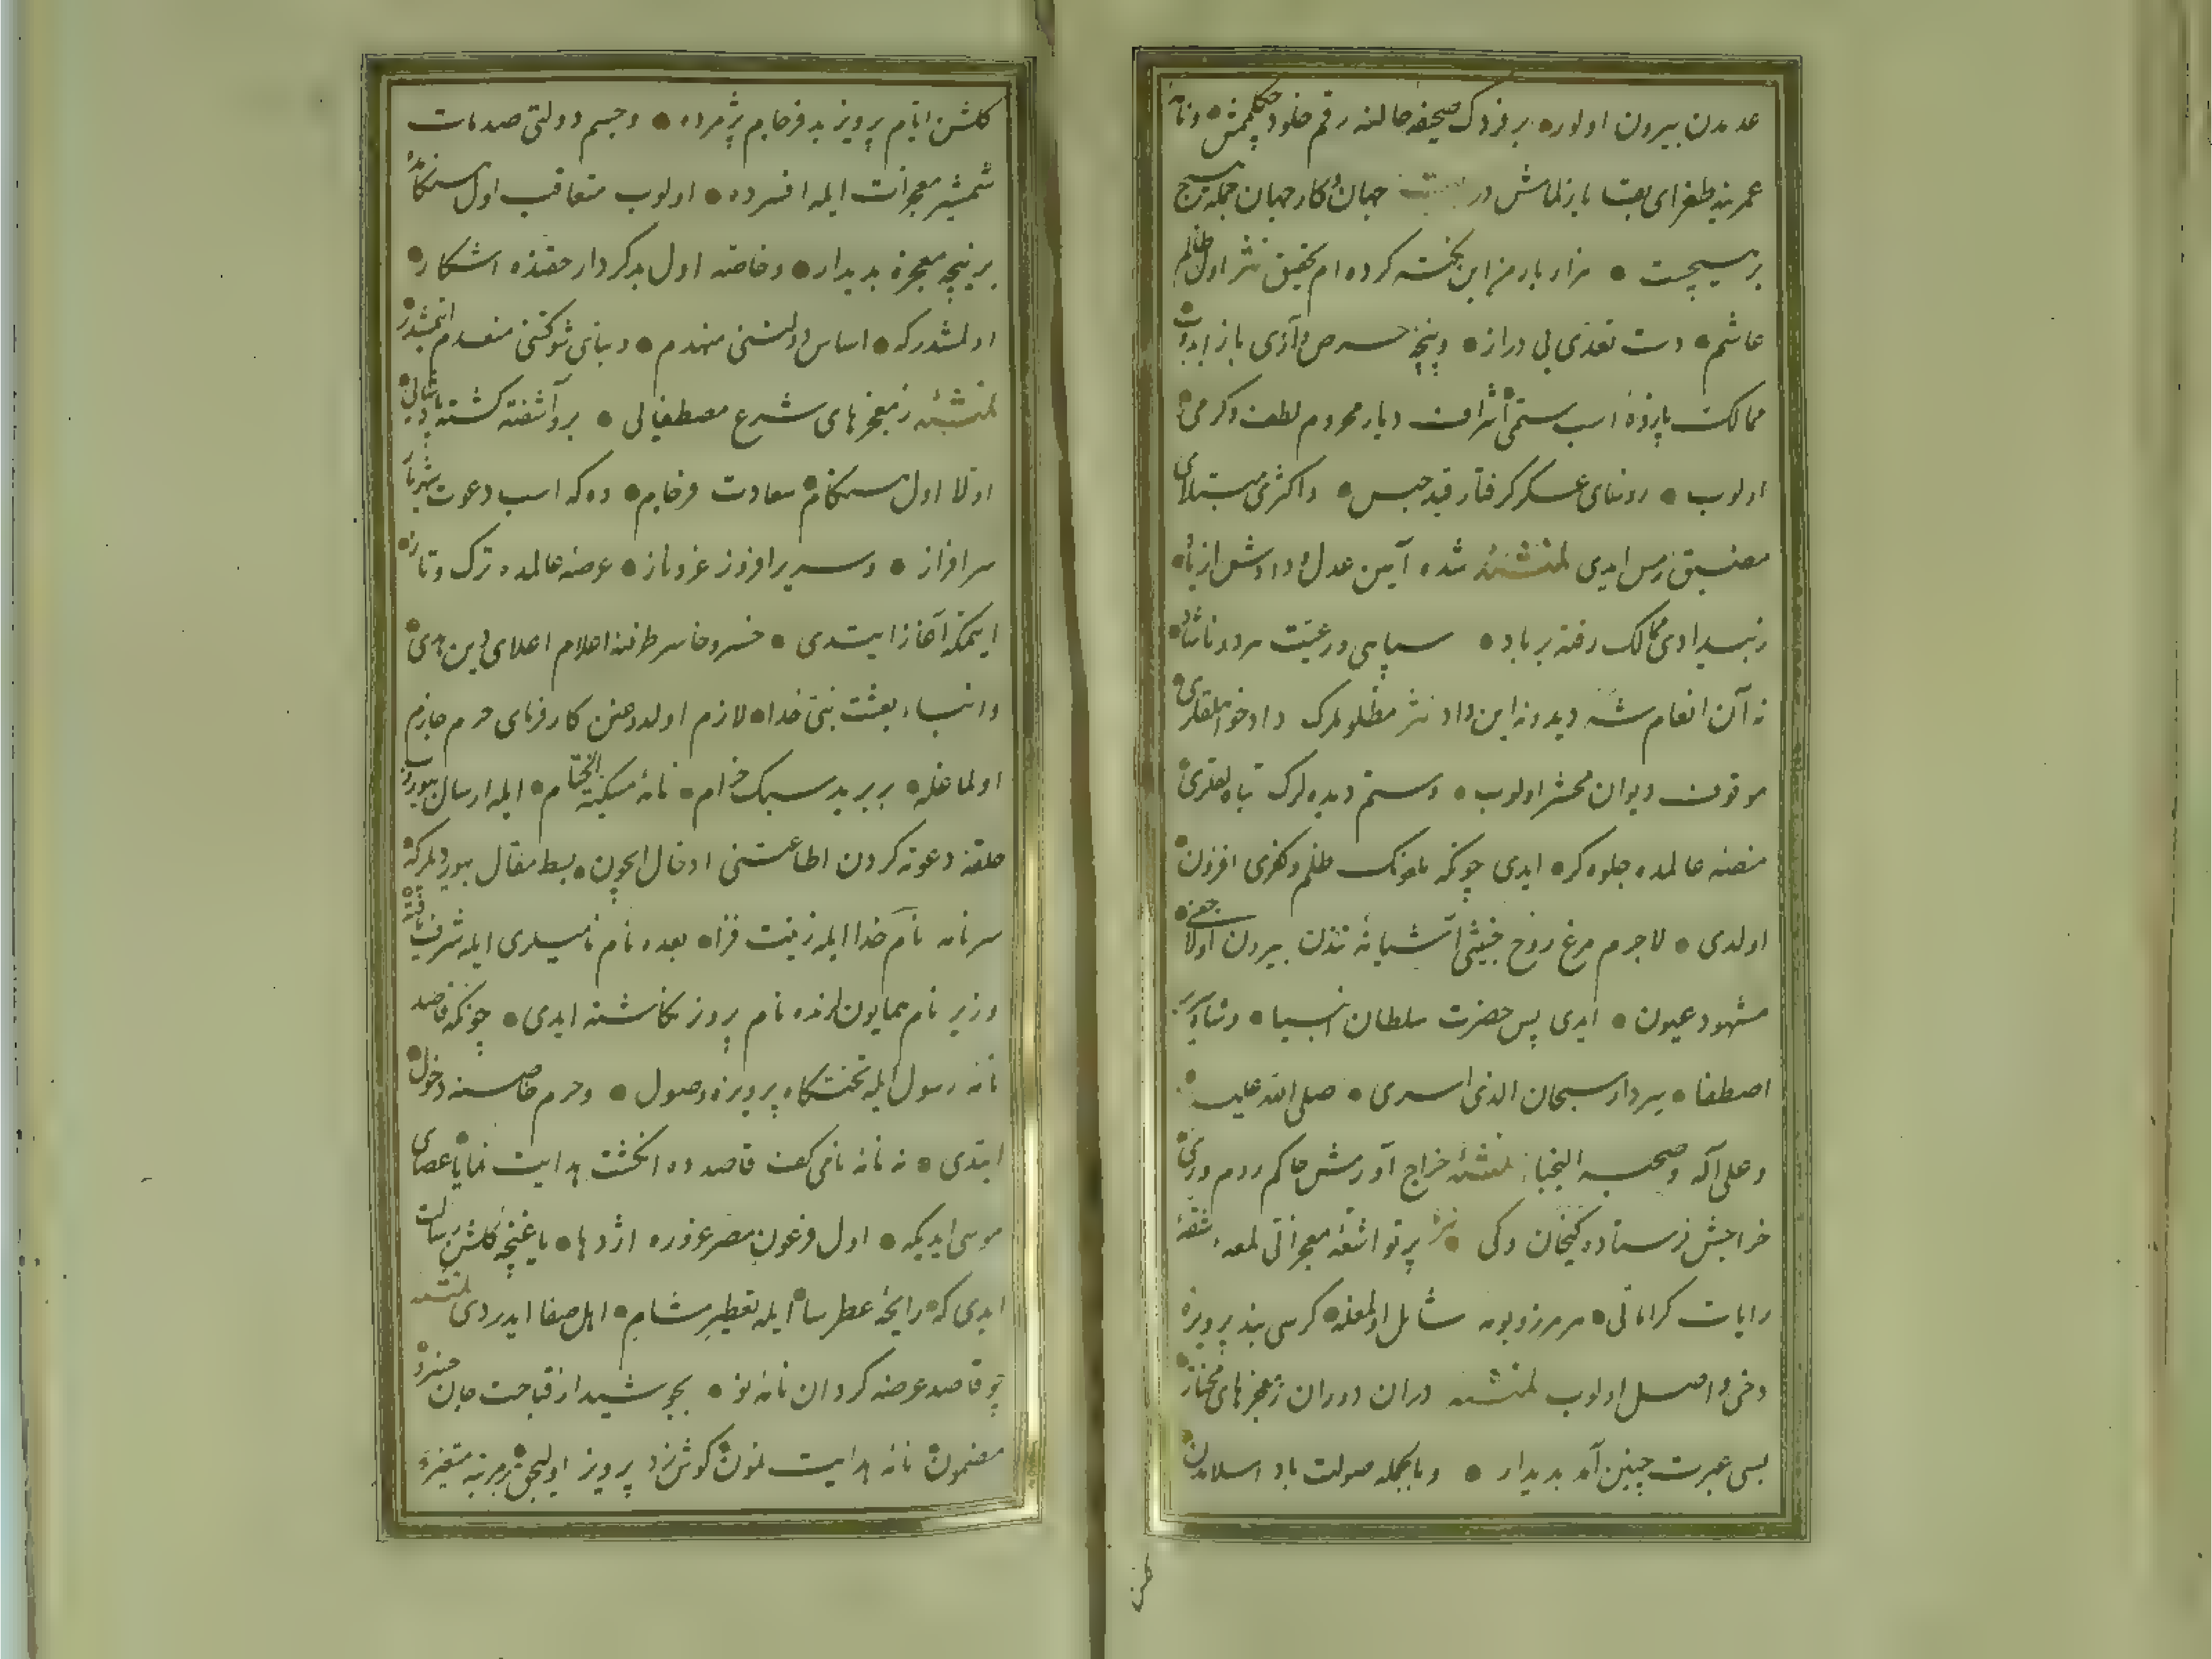 عدمدن بیرون اولور بر فردک صحیفه حالنه رقم خلود چکلممش ونامهٔ
عمرینه طغرای بقا یازلمامش در بیت جهان و کار جهان جمله هیچ
بر هیچست هزار بار من این نکته کرده ام تحقیق نثر اول ظالم
غاشم دست تعدی یی دراز و پنجهٔ حرص و آزی باز ایدوب
ممالک پایزدهٔ اسب ستمی اشراف دیار محروم لطف و کرمی
اولوب رؤسای عسکر گرفتار قید حبس و اکثری مبتلای
مضیق رمس ایدی لمنشئه شده آیین عدل و دادش از یاد
زبیدادی ممالک رفته بر باد سپاهی و رعیت هر دو ناشاد
نه آن انعام شه دید و نه این داد نثر مظلوملرک دادخواهلقلری
موقوف دیوان محشر اولوب و ستم دیده لرک تباه لقلری
منصه عالمده جلوه کر ایدی چونکه ملعونک ظلم و کفری افزون
اولدی لاجرم مرغ روح خبیثی آشیانهٔ تندن بیرون اولاجغی
مشهود عیون ایدی پس حضرت سلطان انبیا وشاه سریر
اصطفا سردار سبحان الذی اسری صلی الله علیه
وعلی آله وصحبه النجبا لمنشئه خراج آورش حاکم روم وری
خراجش فرستاده کیخان وکی نثر پرتو اشعهٔ معجزاتی لمعه اشقهٔ
رایات کراماتی هر مرز و بومه شامل اولمغله کرسی بند پرویزه
دخی واصل اولوب لمنشئه دران دوران زمعجزهای مختار
بسی عبرت چنین آمد بدیدار وبالجمله صولت باد اسلامدن
کلشن
کلشن ایام پرویز بد فرجام پژمرده وجسم دولتی صدمات
شمشیر معجزات ایله افسرده اولوب متعاقب اول هنگامده
بر نیچه معجزه بدیدار وخاصه اول بدکردار حقنده اشکار
اولمشدرکه اساس دولتنی منهدم وبنای شوکتنی منعدم ایتمشدر
لمنشئه زمعجزهای شرع مصطفایی برو آشفته گشته پادشایی
اولا اول هنگام سعادت فرجام ده که اسب دعوت شهریار
سرافراز وسریر افروز عز وناز عرصه عالمده ترک وتاز
ایتمکه آغاز ایتدی خسرو خاسر طرفنه اعلام اعلای دین هدی
وانباء بعثت نبی خدا لازم اولدوغن کارفرمای حرم جازم
اولماغله بر برید سبک خرام نامهٔ مسکیة الختام ایله ارسال بیوروب
حلقه دعوته کردن اطاعتنی ادخال ایچون بسط مقال بیوردیلرکه
سرنامه نام خدا ایله زینت فزا بعده نام نامیلری ایله شرف یافته
وزیر نام همایونلرنده نام پرویز نگاشته ایدی چونکه قاصد
نامه رسول ایله تختگاه پرویزه وصول وحرم خاصنه دخول
ایتدی نه نامه نامی کف قاصدده انگشت هدایت نما یا عصای
موسی ایدیکه اول فرعون مصر غروره اژدها یا غنچهٔ گلشن رسالت
ایدی که رایحهٔ عطرسا ایله تعطیر مشام اهل صفا ایدردی لمنشئه
چو قاصد عرضه کرد ان نامه نو بجوشید از قباحت جان خسرو
مضمون نامه هدایت نمون کوش زد پرویز اولیجق بر مرتبه متغیر